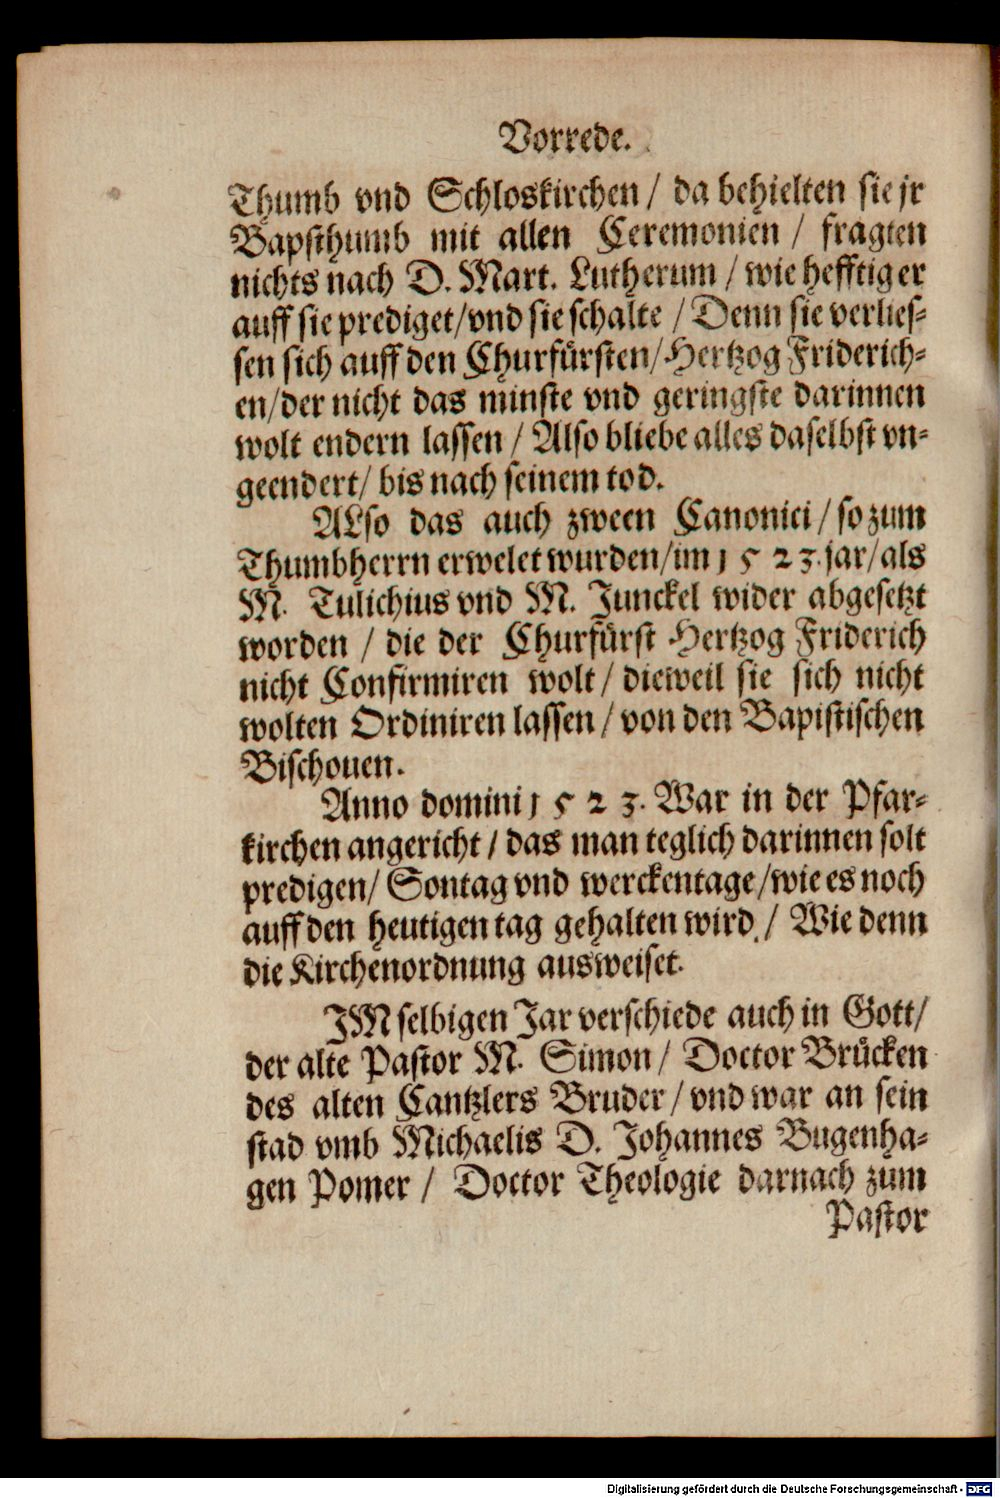 Vorrede.
Thumb vnd Schloskirchen / da behielten sie jr
Bapsthumb mit allen Ceremonien / fragten
nichts nach D. Mart. Lutherum / wie hefftig er
auff sie prediget/vnd sie schalte / Denn sie verlies-
sen sich auff den Churfürsten/Hertzog Friderich-
en/der nicht das minste vnd geringste darinnen
wolt endern lassen / Also bliebe alles daselbst vn-
geendert/ bis nach seinem tod.
ALso das auch zween Canonici / so zum
Thumbherrn erwelet wurden/im 1 5 2 3. jar/als
M. Tulichius vnd M. Junckel wider abgesetzt
worden / die der Churfürst Hertzog Friderich
nicht Confirmiren wolt / dieweil sie sich nicht
wolten Ordiniren lassen / von den Bapistischen
Bischouen.
Anno domini 1 5 2 3. War in der Pfar-
kirchen angericht / das man teglich darinnen solt
predigen/ Sontag vnd werckentage/wie es noch
auff den heutigen tag gehalten wird / Wie denn
die Kirchenordnung ausweiset.
JM selbigen Jar verschiede auch in Gott/
der alte Pastor M. Simon / Doctor Brücken
des alten Cantzlers Bruder / vnd war an sein
stad vmb Michaelis D. Johannes Bugenha-
gen Pomer / Doctor Theologie darnach zum
Pastor
Digitalisierung gefördert durch die Deutsche Forschungsgemeinschaft - DFG